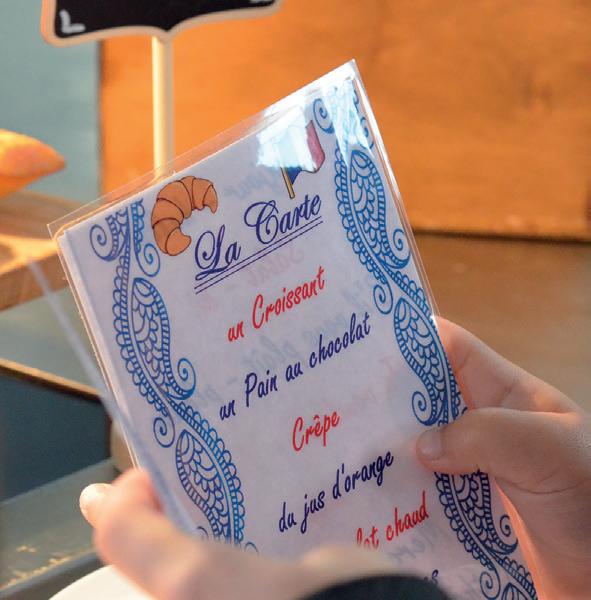 La Carte
un Croissant
un Pain au chocolat
Crêpe
du jus d'orange
chaud